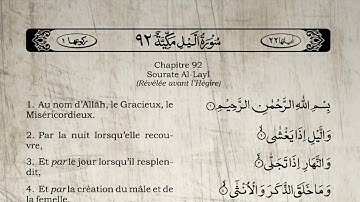 سُوْرَةُ الَّيْلِ مَكِّيَّةٌ ٩٢
Chapitre 92
Sourate Al-Layl
(Révélée avant l'Hégire)
1. Au nom d'Allāh, le Gracieux, le
Miséricordieux.
بِسْمِ اللّٰهِ الرَّحْمٰنِ الرَّحِيْمِ
2. Par la nuit lorsqu'elle recou-
vre,
وَالَّيْلِ اِذَا يَغْشٰى
3. Et par le jour lorsqu'il resplen-
dit,
وَالنَّهَارِ اِذَا تَجَلّٰى
4. Et par la création du mâle et de
la femelle,
وَمَا خَلَقَ الذَّكَرَ وَالْاُنْثٰى